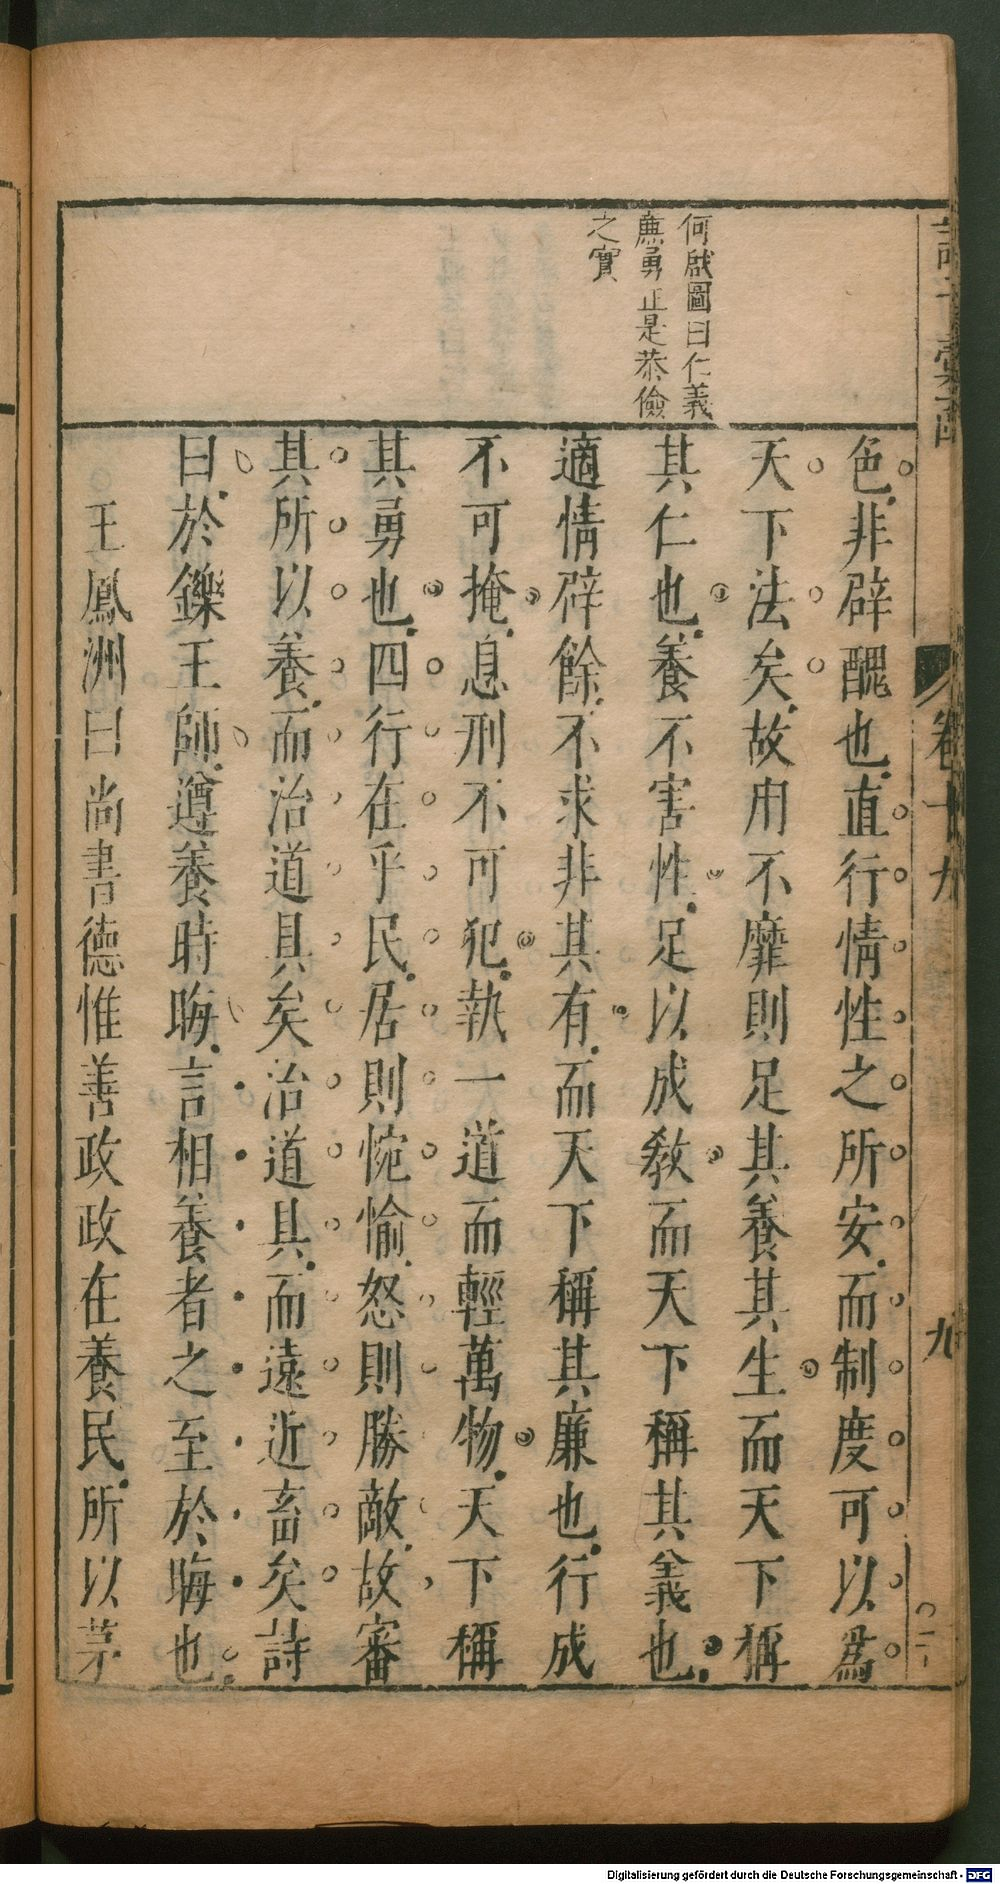 何啟圖曰仁義
廉勇正是恭儉
之實
色非辟醜也直行情性之所安而制度可以為
天下法矣故用不靡則足其養其生而天下稱
其仁也養不害性足以成教而天下稱其義也
適情辟餘不求非其有而天下稱其廉也行成
不可掩息刑不可犯執一道而輕萬物天下稱
其勇也四行在乎民居則惋愉怒則勝敵故審
其所以養而治道具矣治道具而遠近畜矣詩
曰於鑠王師遵養時晦言相養者之至於晦也
王鳳洲曰尚書德惟善政政在養民所以茅
卷十九
九
Digitalisierung gefördert durch die Deutsche Forschungsgemeinschaft - DFG